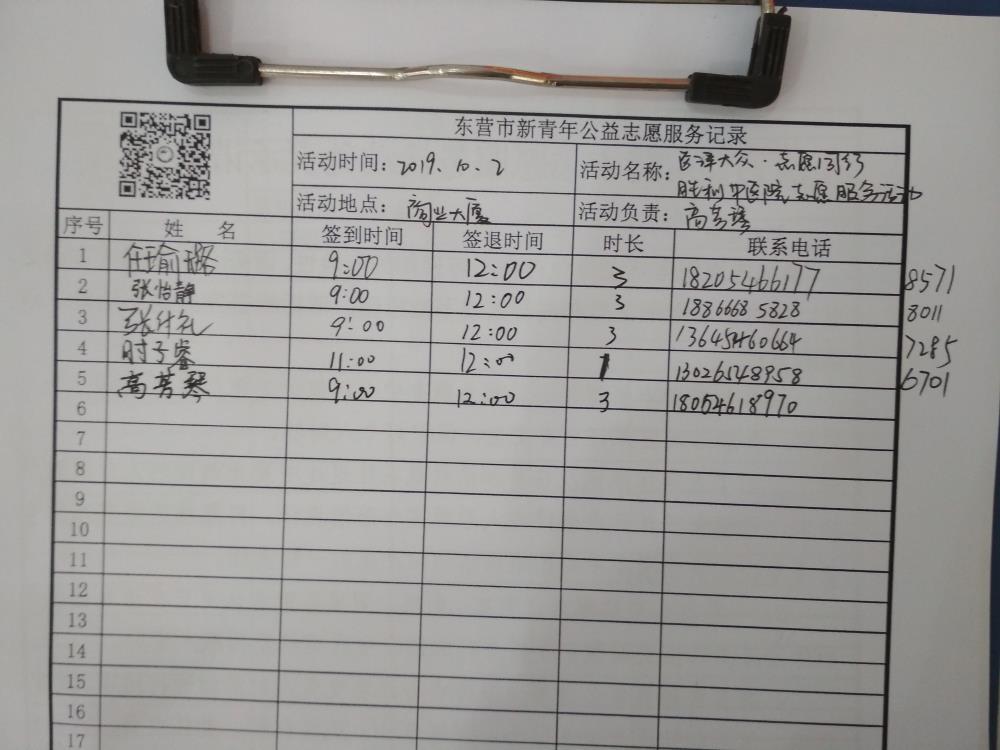 东营市新青年公益志愿服务记录
活动时间：2019.10.2
活动名称：医泽大众·志愿同行
胜利中医院志愿服务活动
活动地点：商业大厦
活动负责：高芳琴
序号 姓 名 签到时间 签退时间 时长 联系电话
1 任瑜璐 9:00 12:00 3 18205466177 8571
2 张怡静 9:00 12:00 3 1886668 5828 8011
3 张什礼 9:00 12:00 3 13645460664 7285
4 时子睿 11:00 12:00 1 13026548958 6701
5 高芳琴 9:00 12:00 3 18054618970
6
7
8
9
10
11
12
13
14
15
16
17